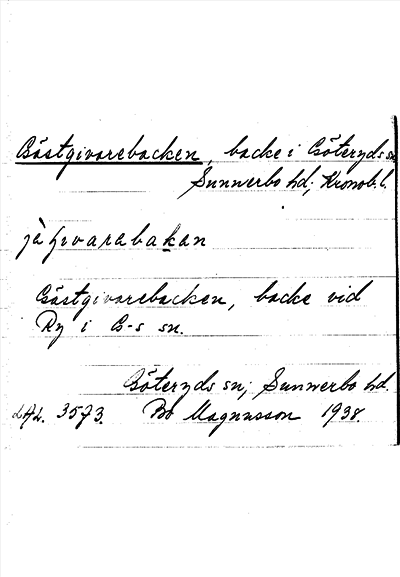 Gästgivarebacken, backe i Göteryds sn
Sunnerbo hd; Kronob. l.
jä𝑠ivarabakan
Gästgivarebacken, backe vid
Ry i G-s sn.
Göteryds sn; Sunnerbo hd.
LAL. 3573. Bo Magnusson 1938.